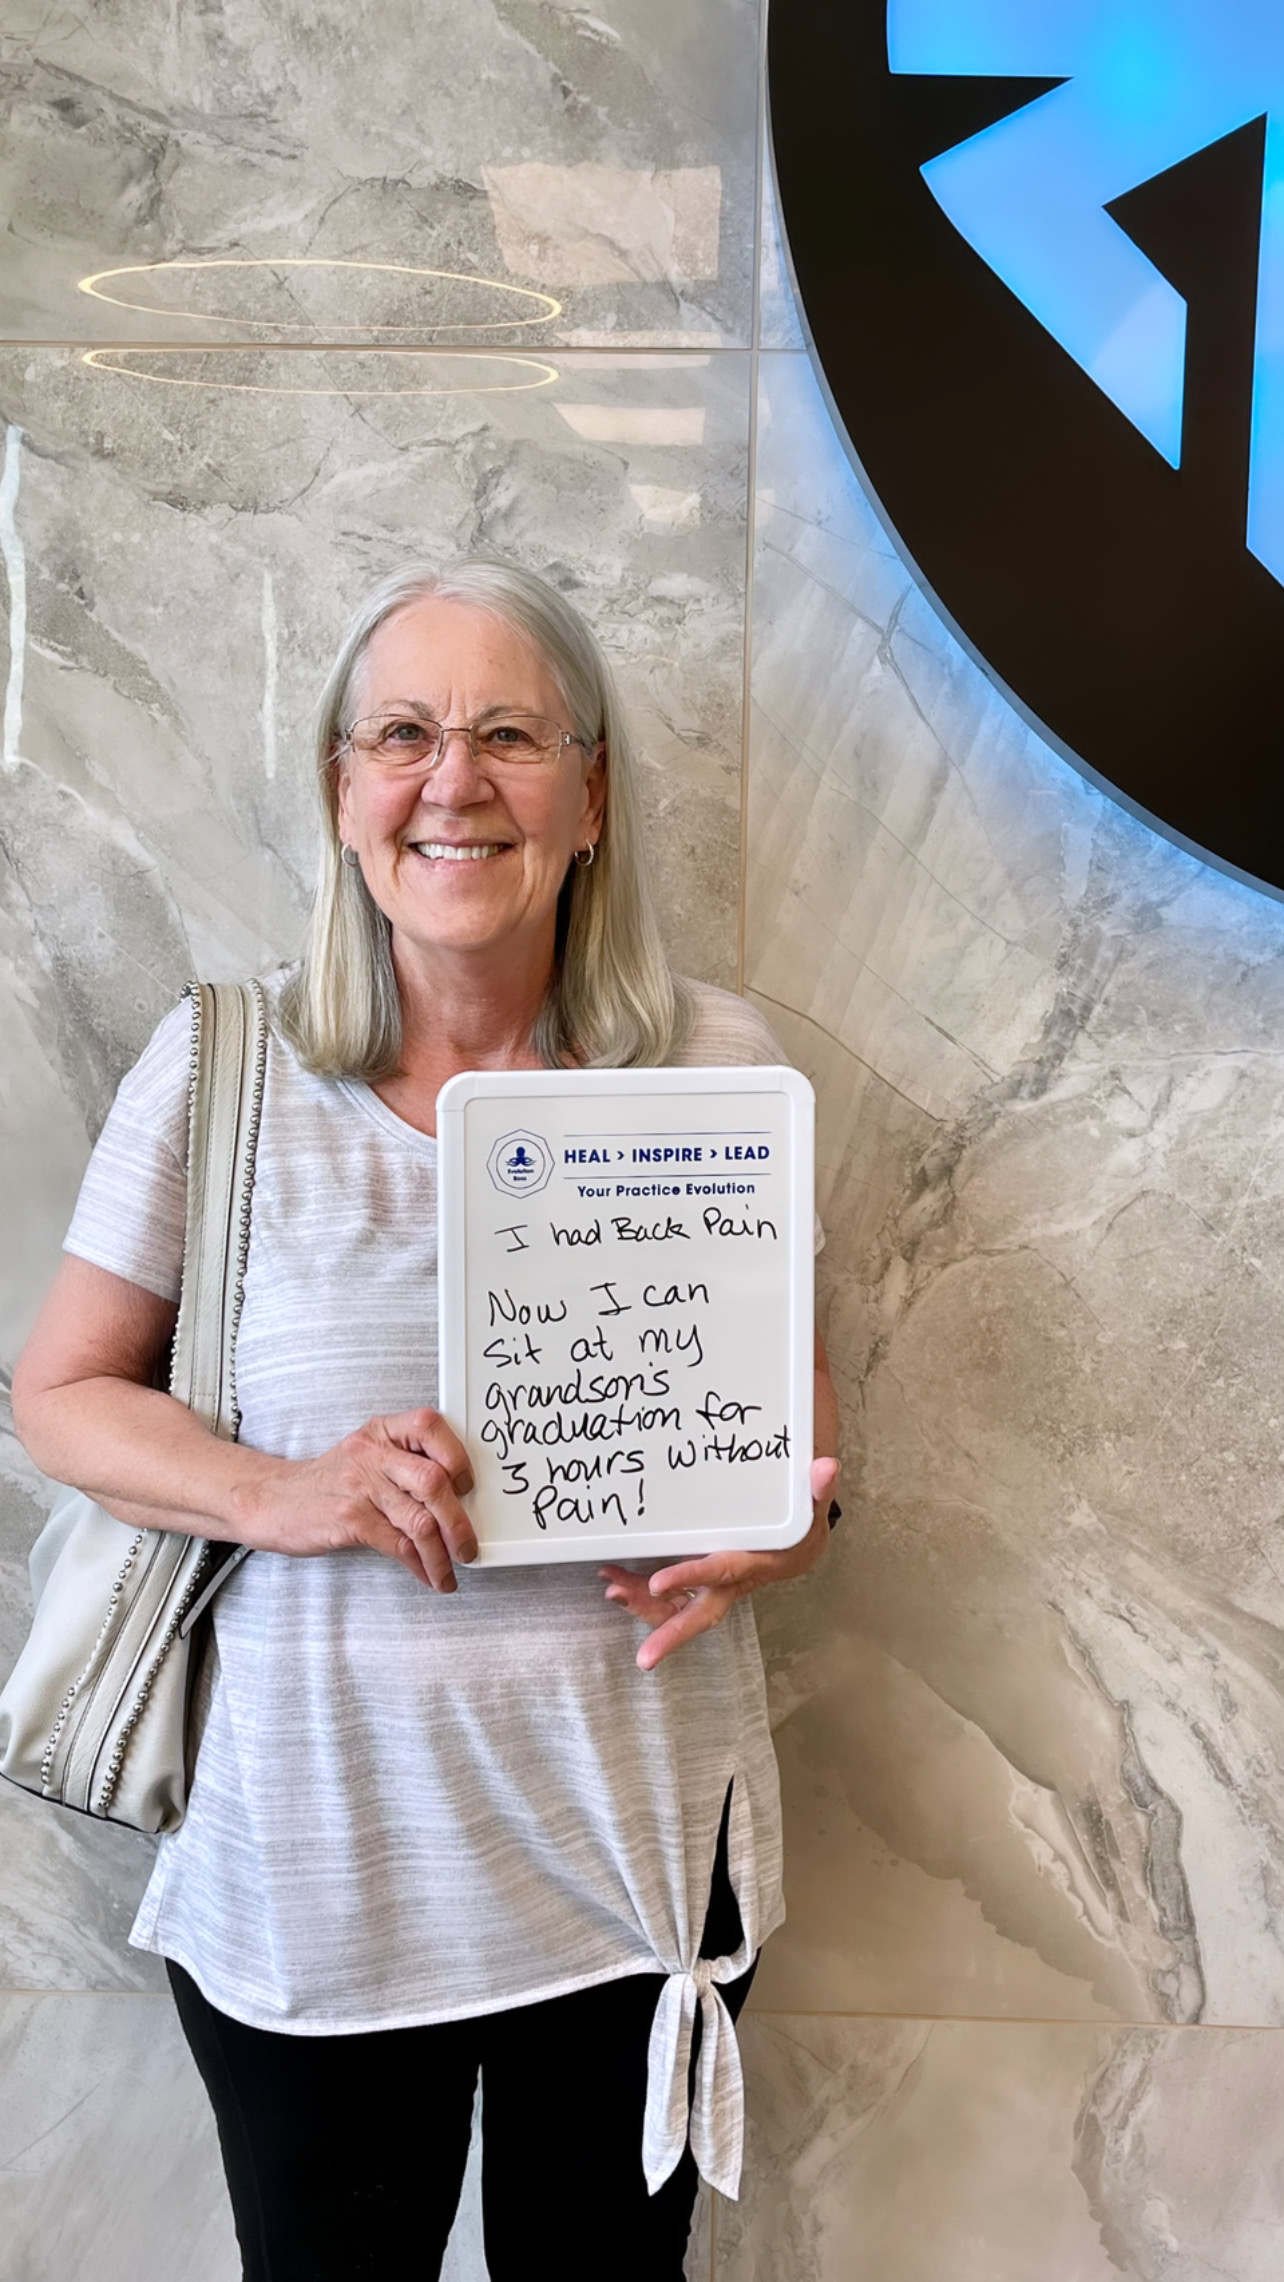 HEAL > INSPIRE > LEAD
Evolution
Boss
Your Practice Evolution
I had Back Pain
Now I can
Sit at my
grandson's
graduation for
3 hours without
Pain!